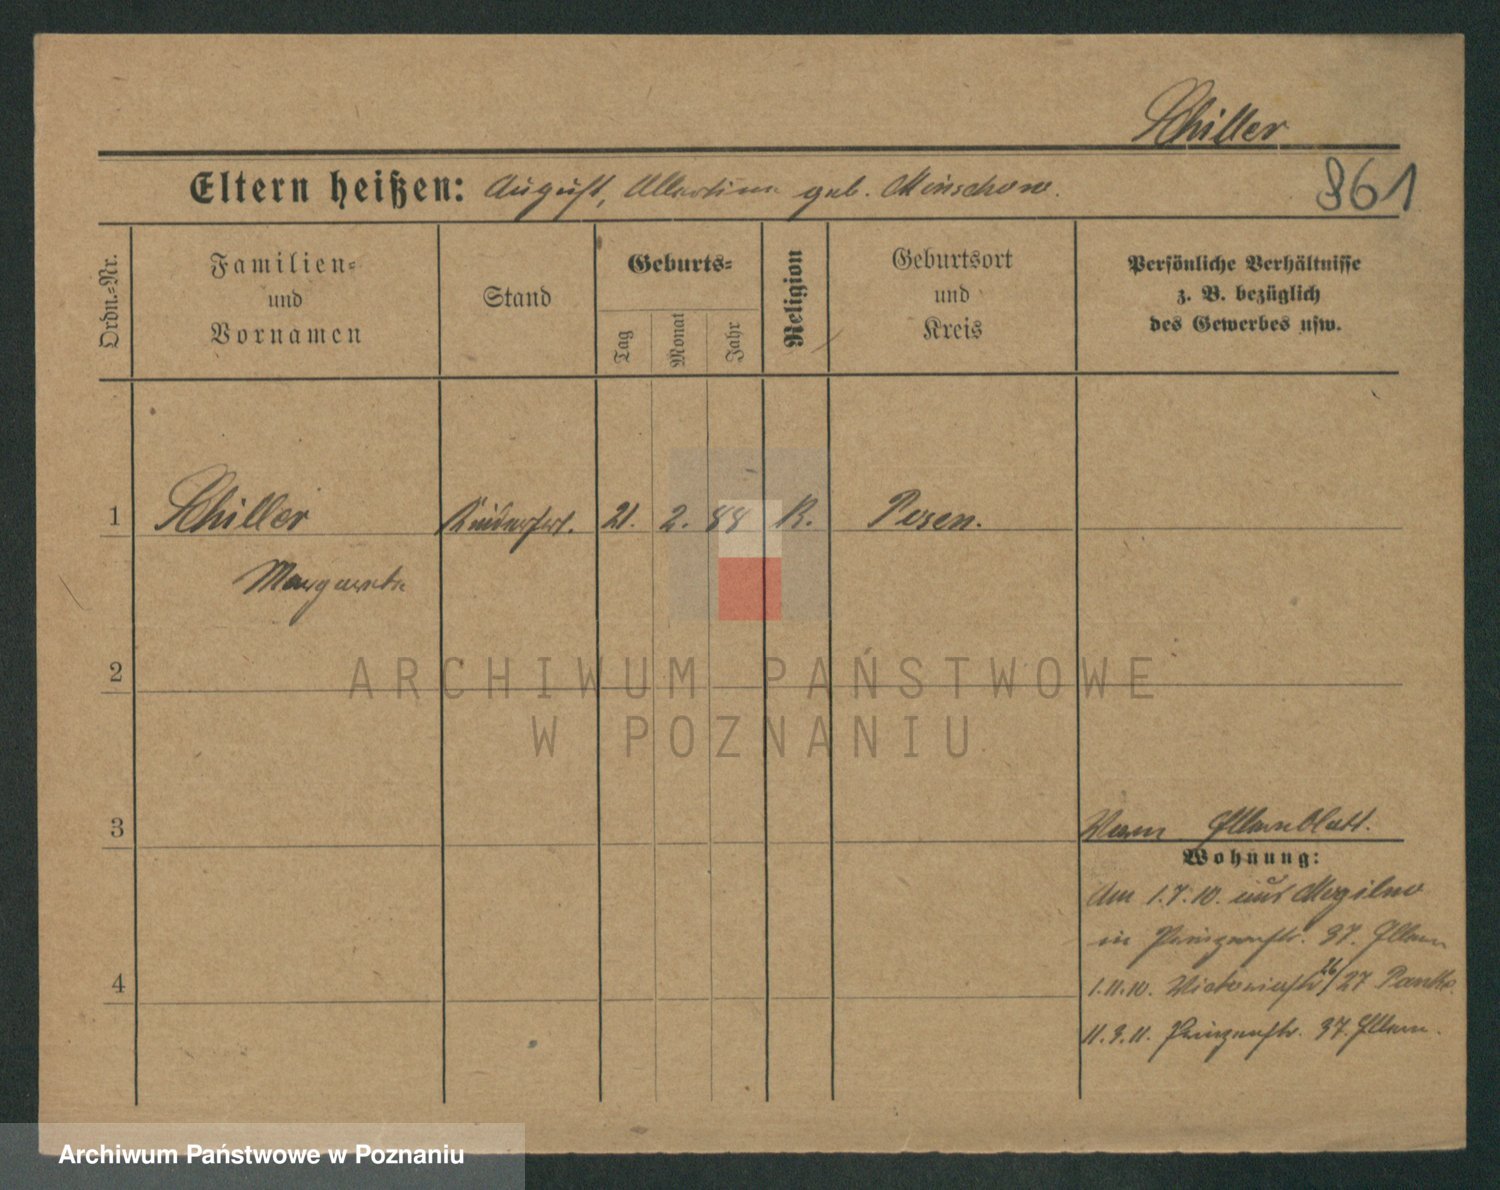 Schiller
Eltern heißen: August, Martina geb. Minschow.
861
Ordn.-Nr.
Familien-
und
Vornamen
Stand
Geburts-
Tag
Monat
Jahr
Religion
Geburtsort
und
Kreis
Persönliche Verhältnisse
z. B. bezüglich
des Gewerbes usw.
1
Schiller
Kinderfrl.
21.
2.
88
K.
Posen.
Margarete
2
ARCHIWUM PAŃSTWOWE
W POZNANIU
3
Elternblatt.
Wohnung:
Am 1.7.10. aus Mogilno
in Prinzenstr. 37. Eltern
4
1.11.10. Victoriastr 26/27
11.3.11. Prinzenstr. 37. Eltern.
Archiwum Państwowe w Poznaniu